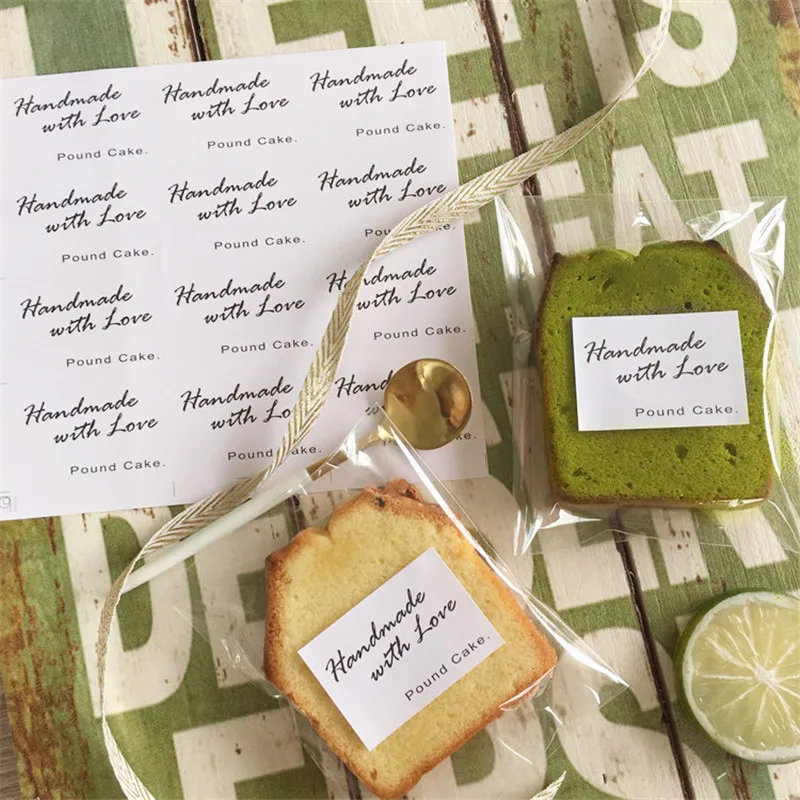 Handmade
with Love
Pound Cake.
Handmade
with Love
Pound Cake.
Handmade
with Love
Pound Cake.
Handmade
with Love
Pound Cake.
Handmade
with Love
Pound Cake.
Handmade
with Love
Pound
Handmade
with Love
Pound Cake.
Handmade
with Love
Pound Cake.
Handmade
with Love
Pound Cake.
Handmade
with Love
Pound Cake.
Handmade
with Love
Pound
Handmade
Handmade
with Love
Pound Cake.
Handmade
with Love
Pound Cake.
LET'S
EAT